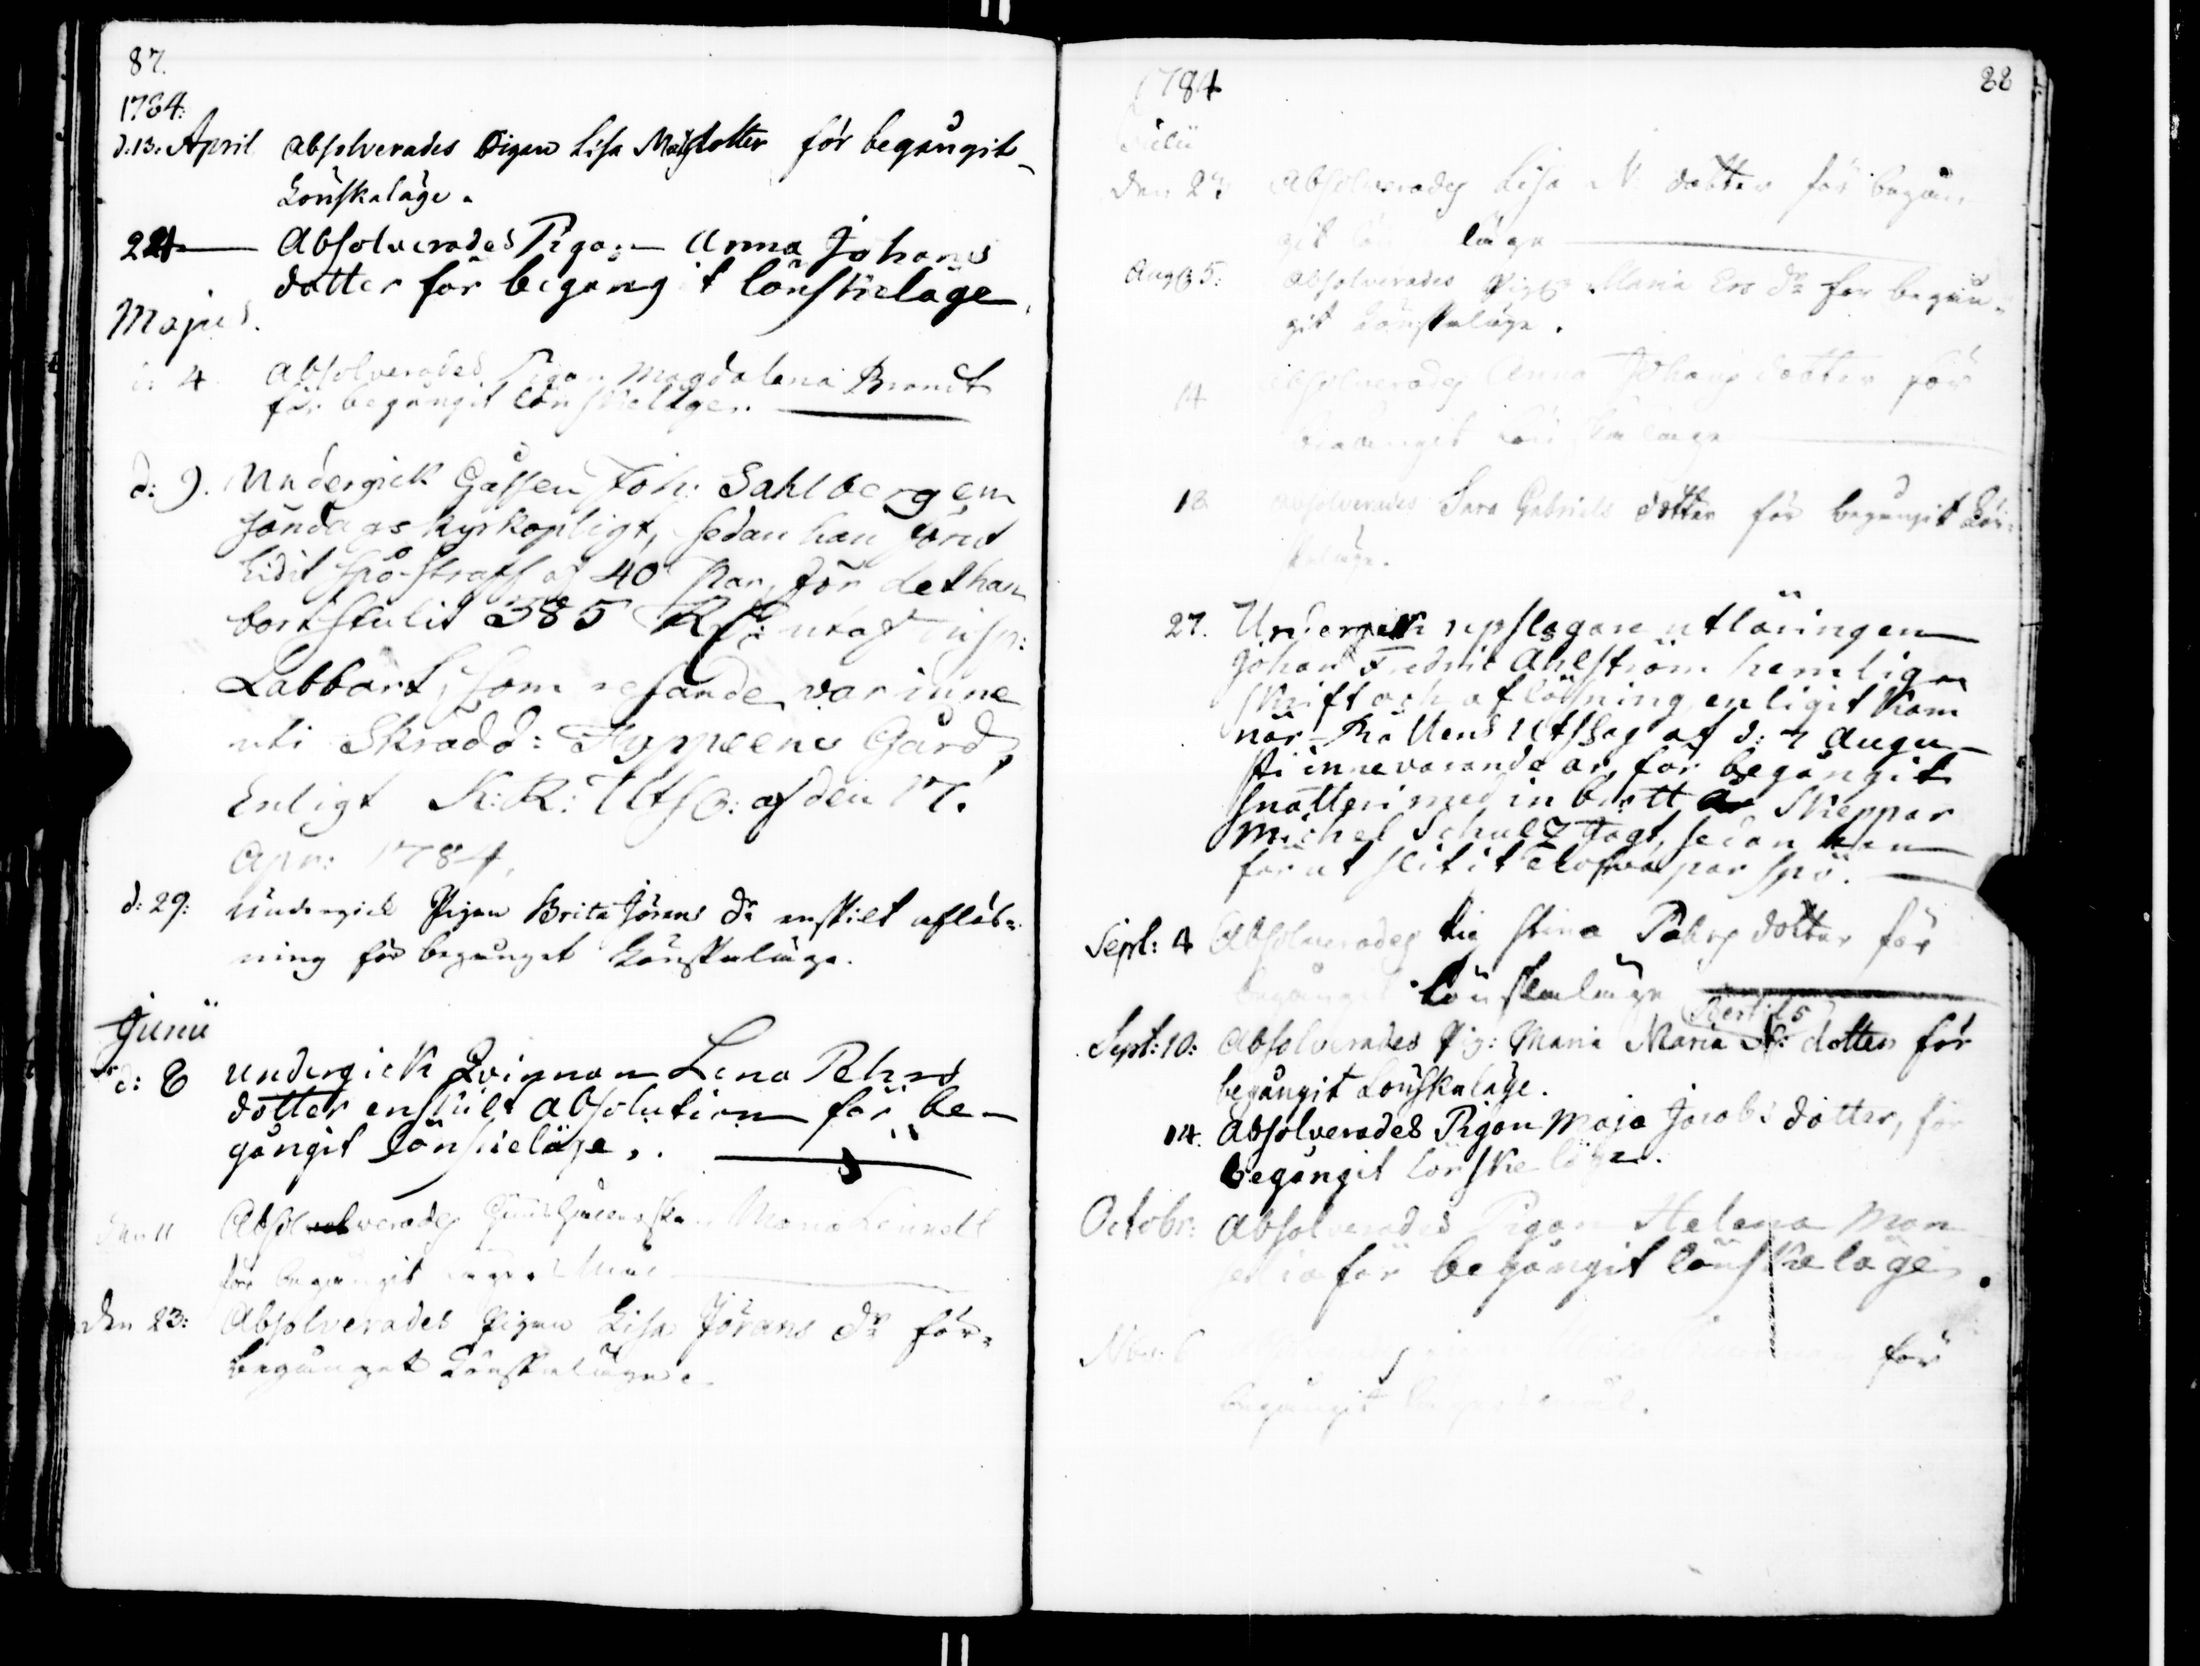 87.
1784:
d. 13. April absolverades Pigan Lisa Matsdotter för begångit
Lönskaläge.
24 Absolverades Pigan Anna Johans
dotter för begångit lönskeläge.
Majus.
d: 4 Absolverades Pigan Magdalena Brandt
för begångit lönskeläge.
d: 9. Undergick Gåssen Joh: Sahlberg em
söndags kyrkopligt, sedan han förut
lidit spö-straff af 40 Par, för det han
bortstulit 385 utaf Insp:
Labbart, som resande var inne
uti Skrädd: Hyppeens Gård,
Enligt K: R: Utsl: af den 17.
Apr: 1784.
d: 29: Undergick Pigan Brita Jörans dr enskilt aflös-
ning för begånget Lönskaläge.
Junii
d: 8 undergick Qvinnan Lena Pehrs
dotter enskilt absolution för be-
gångit lönskeläge.
Den 11 Absolverades Mana
för begångit
Den 23: Absolverades Pigan Lisa Jörans dr för
begånget Lönskaläge.
1784 88
Julii
Den 27 Absolverades Lisa N. dotter för begån
git läge
Aug 5: absolverades Pig: Maria Ers dr för begån-
git Lönskaläge.
14 Absolverades Anna Johans dotter för
begångit Lönskaläge
18 absolverades Sara Gabriels dotter för begångit Lön-
skaläge.
27. Undergick repslagare utläringen
Johan Fredric Ahlström hemlig
skrift och aflösning enligit Käm
närs Rättens Utslag af d: 7 Augu-
sti innevarande år, för begångit
snatteri med in brott å Skeppar
Michel Schultz Jagt, sedan han
förut slitit Elofva par spö.
Sept: 4 Absolverades Pig Stina Pehrs dotter för
begånget Lönskaläge
Bertils
Sept: 10: Absolverades Pig: Maria Maria N: dotter för
begångit Lönskaläge.
14. Absolverades Pigan Maja Jacobs dotter, för
begångit lönskeläge.
Octobr: Absolverades Pigan Helena Man
för begångit lönskaläge.
Nbr. 6 för
begångit